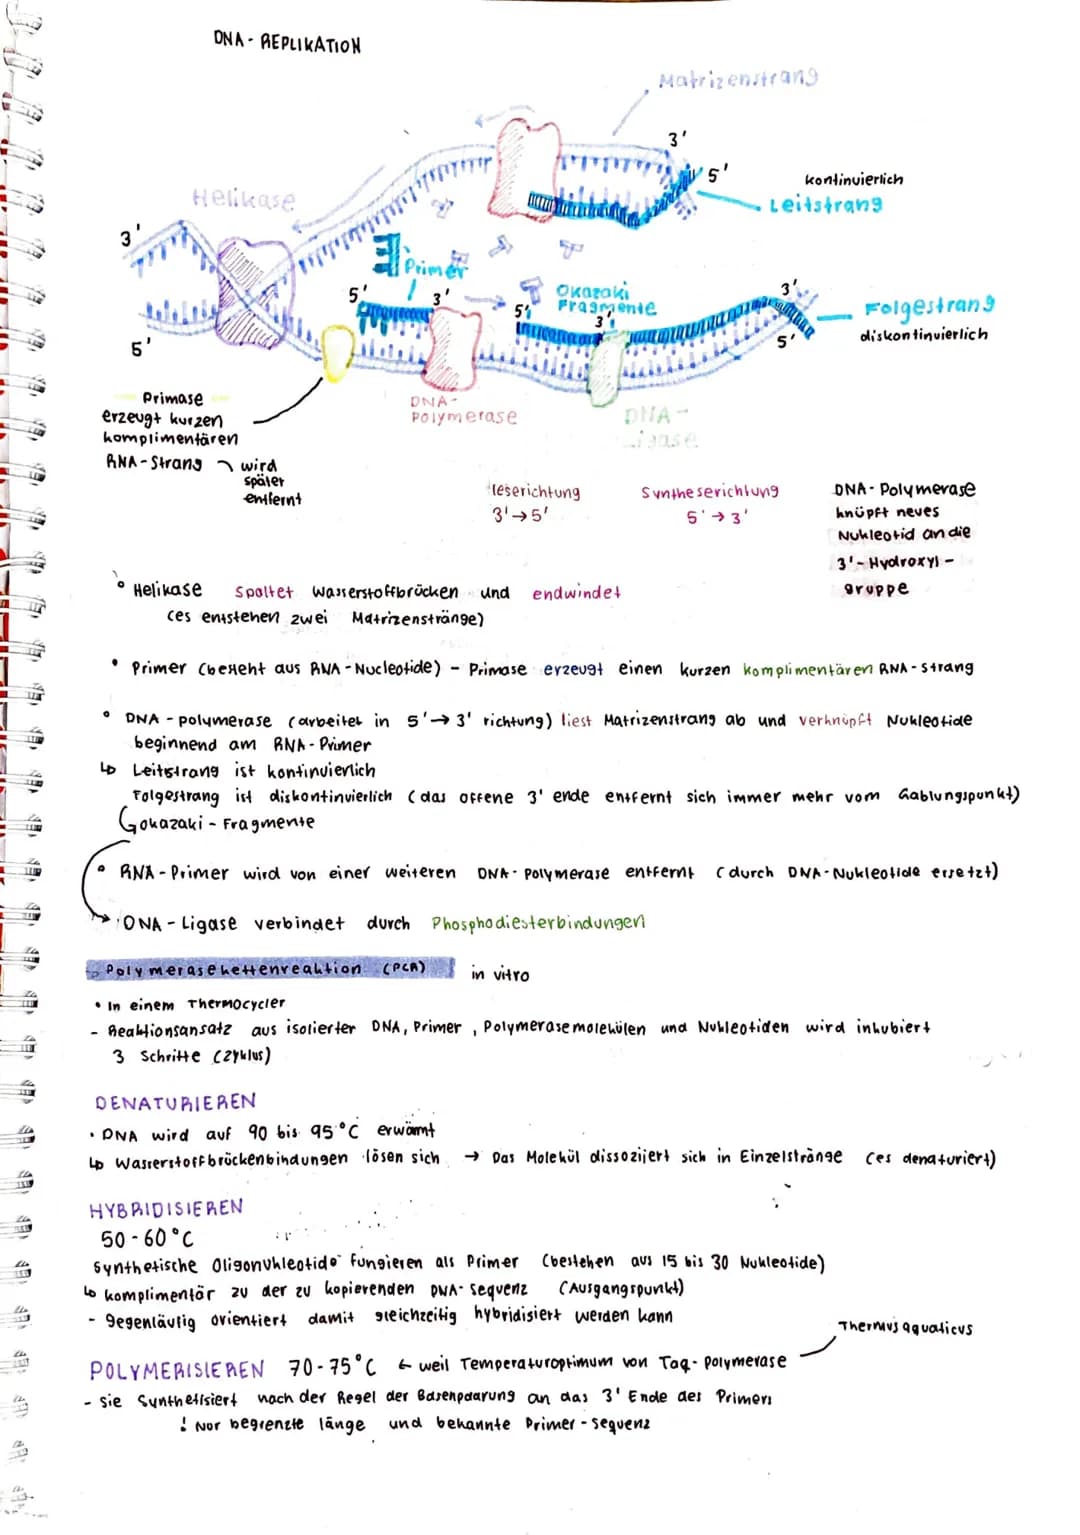 DNA - REPLIKATION
Matrizenstrang
3'
5'
kontinuierlich
Leitstrang
Helikase
3'
Primer
5'
3'
Okazaki
Fragmente
5'
3'
3'
Folgestrang
diskontinuierlich
5'
5'
Primase
erzeugt kurzen
komplimentären
RNA-Strang → wird
später
entfernt
DNA-
Polymerase
DNA-
Ligase
leserichtung
3'→5'
Syntheserichtung
5'→3'
DNA-Polymerase
knüpft neues
Nukleotid an die
3'-Hydroxyl-
gruppe
° Helikase spaltet Wasserstoffbrücken und endwindet
(es entstehen zwei Matrizenstränge)
• Primer (besteht aus RNA-Nucleotide) - Primase erzeugt einen kurzen komplimentären RNA-Strang
° DNA-polymerase (arbeitet in 5'→3' richtung) liest Matrizenstrang ab und verknüpft Nukleotide
beginnend am RNA-Primer
↳ Leitstrang ist kontinuierlich
Folgestrang ist diskontinuierlich (das offene 3' ende entfernt sich immer mehr vom Gablungspunkt)
↳ okazaki-Fragmente
° RNA-Primer wird von einer weiteren DNA-Polymerase entfernt (durch DNA-Nukleotide ersetzt)
→ DNA-Ligase verbindet durch Phosphodiesterbindungen
Polymerasekettenreaktion (PCR) in vitro
• In einem Thermocycler
- Reaktionsansatz aus isolierter DNA, Primer, Polymerasemolekülen und Nukleotiden wird inkubiert
3 Schritte (Zyklus)
DENATURIEREN
• DNA wird auf 90 bis 95°C erwärmt
↳ Wasserstoffbrückenbindungen lösen sich → Das Molekül dissoziiert sich in Einzelstränge (es denaturiert)
HYBRIDISIEREN
50-60°C
Synthetische Oligonukleotide fungieren als Primer (bestehen aus 15 bis 30 Nukleotide)
↳ komplimentär zu der zu kopierenden DNA-Sequenz (Ausgangspunkt)
- gegenläufig orientiert damit gleichzeitig hybridisiert werden kann
Thermus aquaticus
POLYMERISIEREN 70-75°C ← weil Temperaturoptimum von Taq-polymerase
- sie Synthetisiert nach der Regel der Basenpaarung an das 3' Ende des Primers
! Nur begrenzte länge und bekannte Primer-sequenz